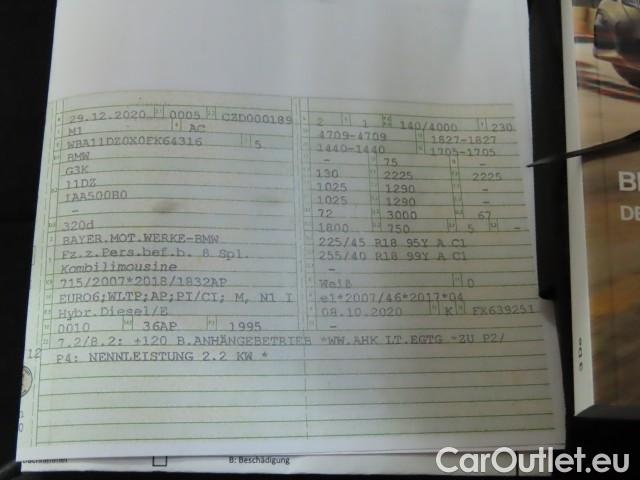 29.12.2020 0005 CZD000189
M1 AC
WBA11DZ0X0FK64316 5
BMW
G3K
11DZ
1AA500B0
-
320d
BAYER.MOT.WERKE-BMW
Fz.z.Pers.bef.b. 8 Spl.
Kombilimousine
715/2007*2018/1832AP
EURO6;WLTP;AP;PI/CI; M, N1 I
Hybr.Diesel/E
0010 36AP 1995
2 1 140/4000 230
4709-4709 1827-1827
1440-1440 1705-1705
- 75 -
130 2225 2225
1025 1290 -
1025 1290 -
72 3000 67
1800 750 5 -
225/45 R18 95Y A C1
255/40 R18 99Y A C1
-
Weiß 0
e1*2007/46*2017*04
08.10.2020 K FX639251
-
7.2/8.2: +120 B.ANHÄNGEBETRIEB *WW.AHK LT.EGTG *ZU P2/
P4: NENNLEISTUNG 2.2 KW *
B: Beschädigung
CarOutlet.eu